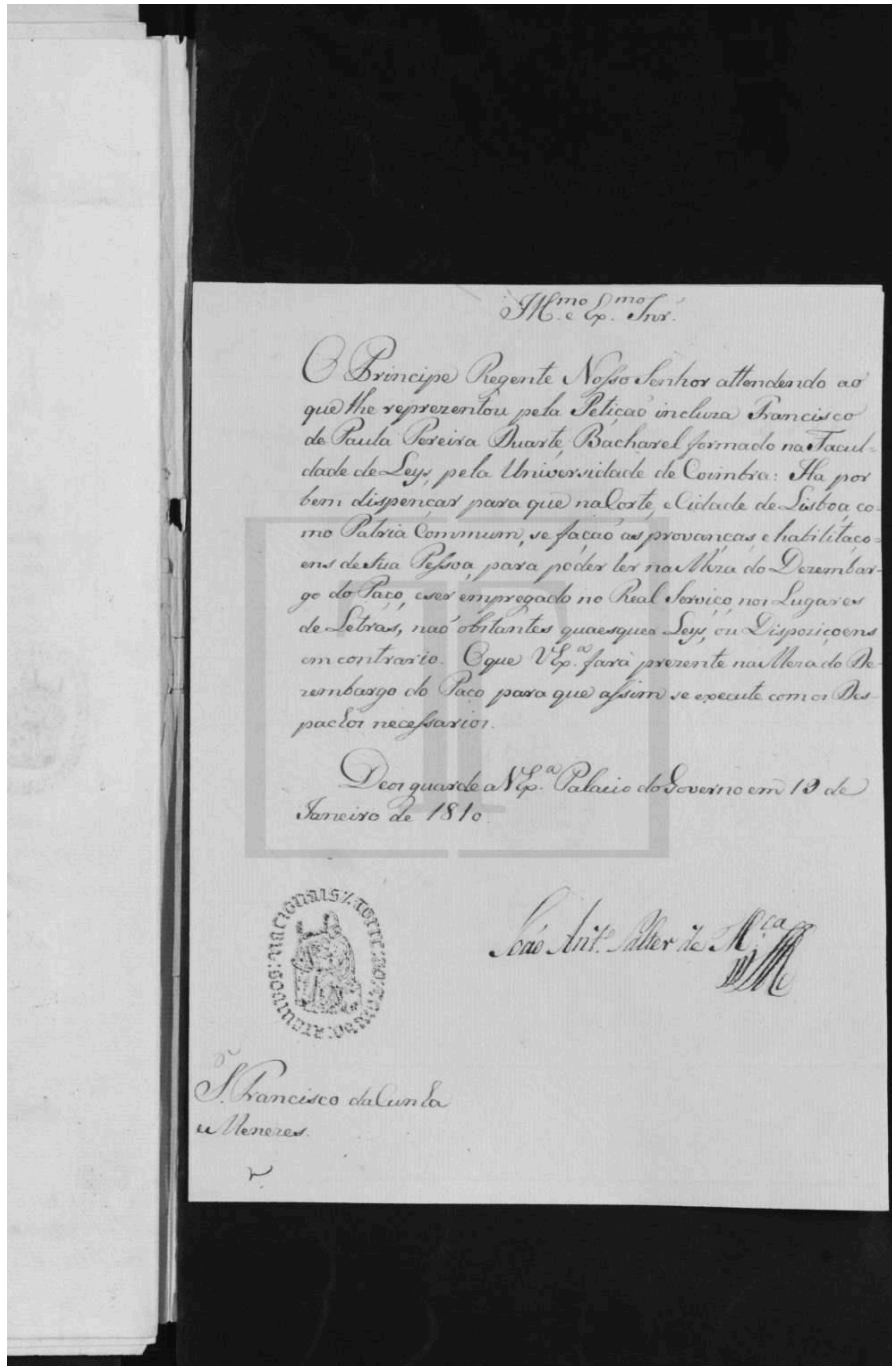 Ill.mo e Ex.mo Snr.
O Principe Regente Nosso Senhor attendendo ao
que lhe reprezentou pela Petiçaõ incluza Francisco
de Paula Pereira Duarte, Bacharel formado na Facul-
dade de Leys, pela Universidade de Coimbra: Ha por
bem dispençar para que na Corte, e Cidade de Lisboa, co-
mo Patria Commum, se façaõ as provanças e habilitaço-
ens de sua Pessoa, para poder ler na Meza do Dezembar-
go do Paço, e ser empregado no Real Serviço nos Lugares
de Letras, naõ obstantes quaesquer Leys, ou Dispoziçoens
em contrario. O que V Ex.ª fará prezente na Meza do De-
zembargo do Paço para que assim se execute com os Des-
pachos necessarios.
Deos guarde a V Ex.ª Palacio do Governo em 19 de
Janeiro de 1810.
João Ant.º Salter de M.ça
ARQUIVOS NACIONAIS TORRE DO TOMBO
S.r Francisco da Cunha
e Menezes.